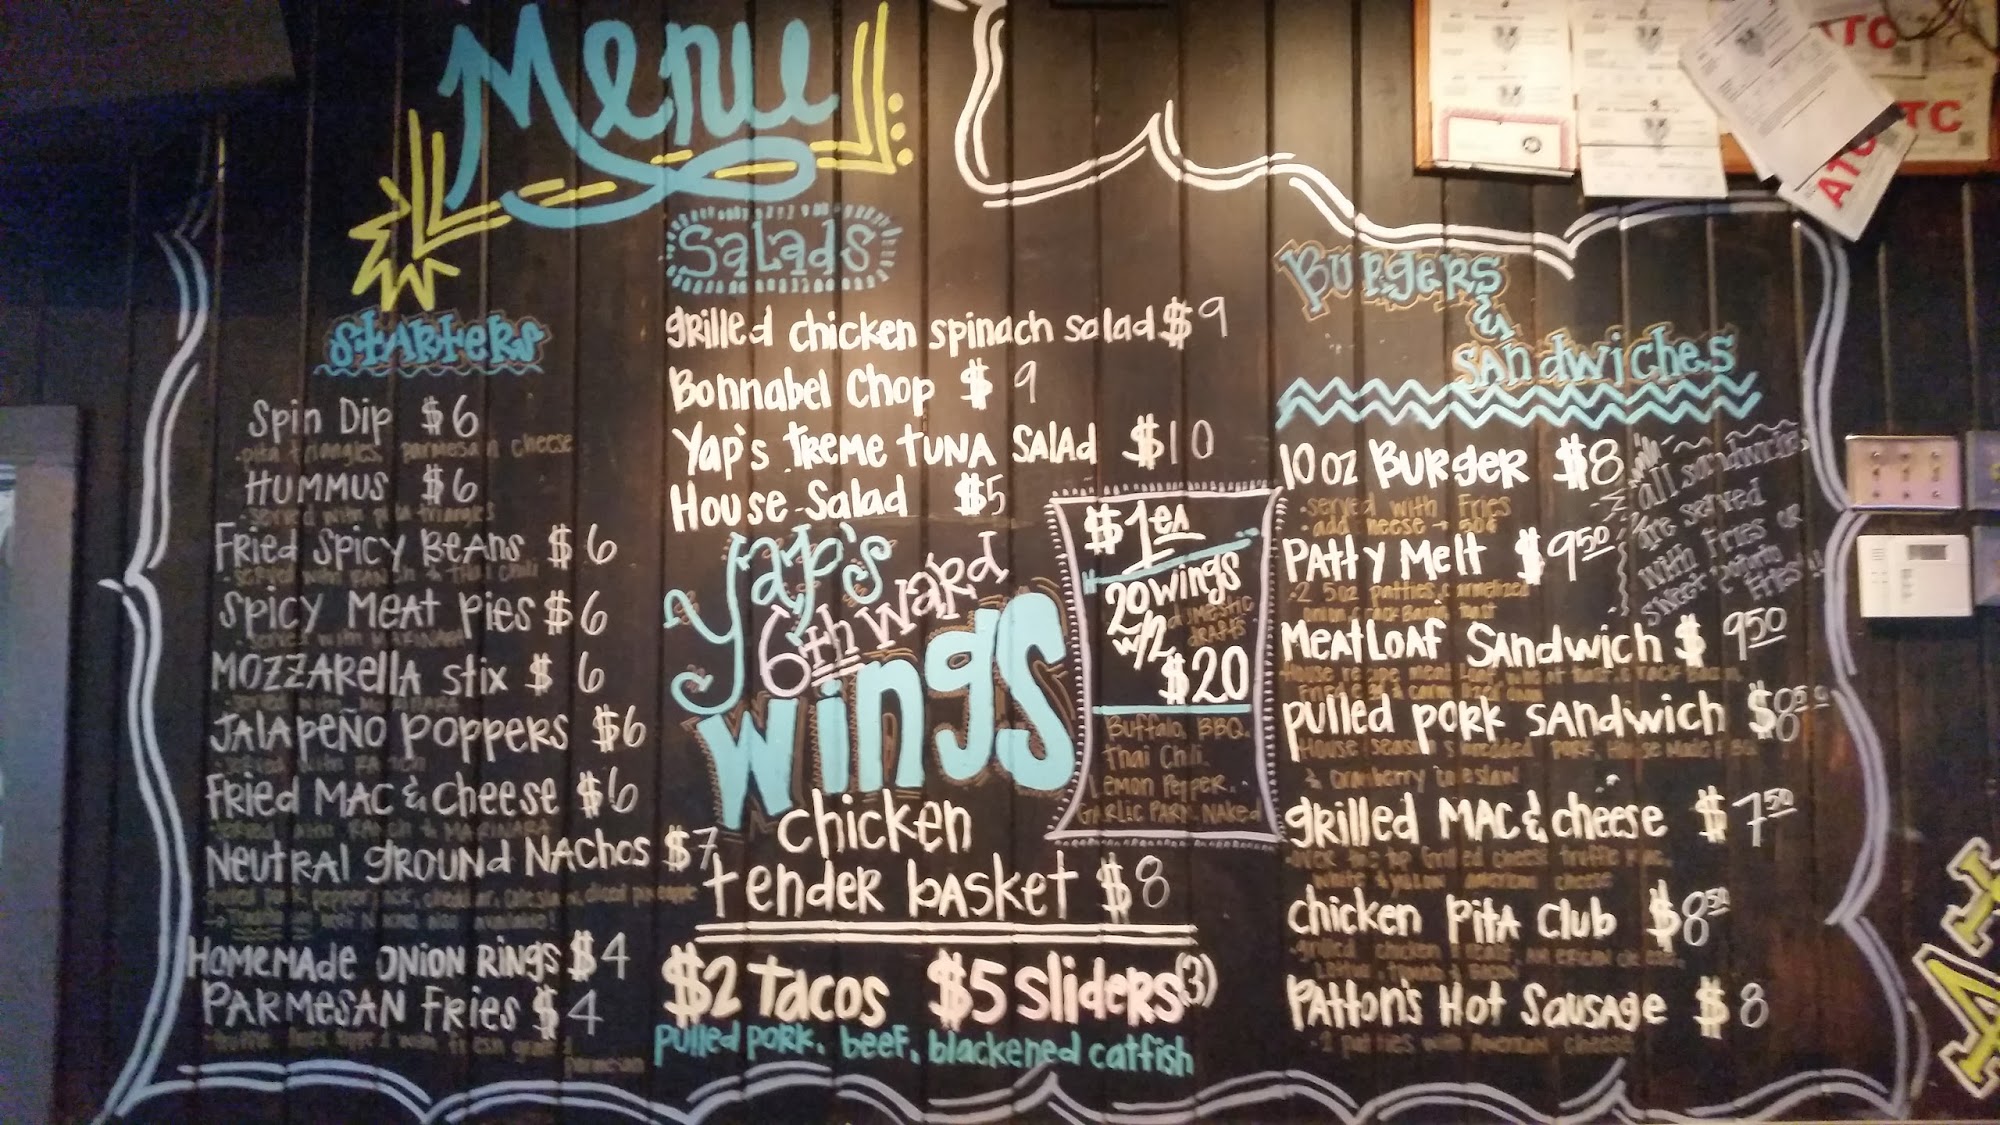 Menu
Starters
Spin Dip $6
pita triangles parmesan cheese
Hummus $6
served with pita triangles
Fried Spicy Beans $6
served with Ranch & Thai Chili
Spicy Meat Pies $6
served with Marinara
Mozzarella Stix $6
served with Marinara
Jalapeño Poppers $6
served with Ranch
Fried Mac & Cheese $6
served with Ranch & Marinara
Neutral Ground Nachos $7
pulled pork, pepperjack, cheddar, coleslaw, diced pineapple
beef Nachos also available!
Homemade Onion Rings $4
Parmesan Fries $4
truffle fries topped with fresh grated
parmesan
Salads
Grilled Chicken Spinach Salad $9
Bonnabel Chop $9
Yap's Treme Tuna Salad $10
House Salad $5
Yap's
6th Ward
Wings
$1 ea
20 wings
w/2 domestic
drafts
$20
Buffalo, BBQ,
Thai Chili,
Lemon Pepper,
Garlic Parm, Naked
Chicken
Tender Basket $8
$2 Tacos $5 Sliders (3)
pulled pork, beef, blackened catfish
Burgers
&
Sandwiches
10 oz Burger $8
served with Fries
add cheese → 50¢
Patty Melt $9.50
2 5oz patties, carmelized
all sandwiches
are served
with Fries or
sweet potato
Fries!!
Meatloaf Sandwich $9.50
Pulled Pork Sandwich $8.50
House seasoned shredded pork, House Made BBQ
& Cranberry Coleslaw
Grilled Mac & Cheese $7.50
over the top Grilled cheese truffle mac,
white & yellow American cheese
Chicken Pita Club $8.50
grilled chicken breast, American cheese,
Patton's Hot Sausage $8
2 patties with American cheese
ATC
TC
ATC